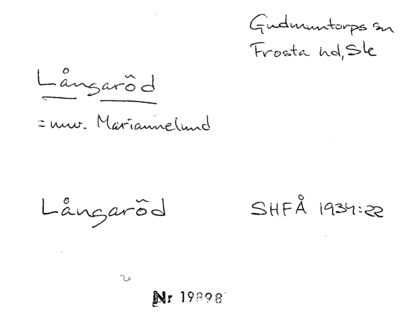 Gudmuntorps sn
Frosta hd, Sk
Långaröd
= nuv. Mariannelund
Långaröd SHFÅ 1934:22
Nr 19898